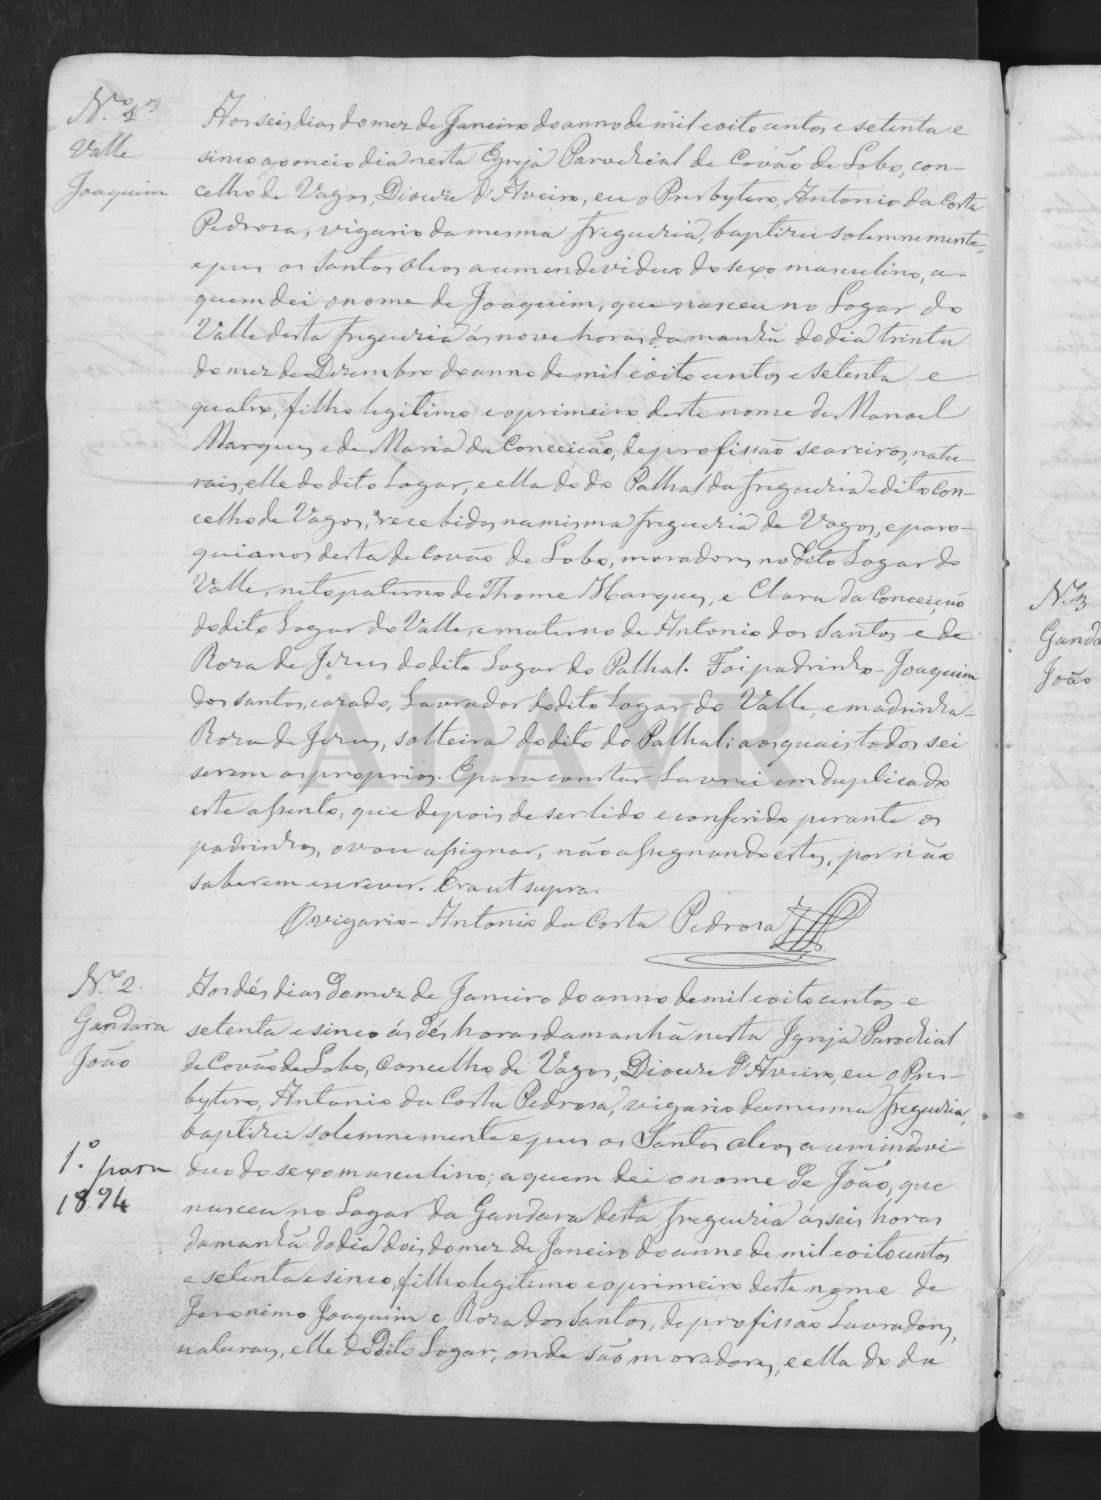 Nº 1º
Valle
Joaquim
Aos seis dias do mez de Janeiro do anno de mil e oito centos e setenta e
sinco ao meio dia nesta Egreja Parochial de Covão de Lobo, con-
celho de Vagos, Diocese d'Aveiro, eu o Presbytero, Antonio da Costa
Pedrosa, vigario da mesma freguezia, baptizei solemnemente,
e puz os Santos Oleos a um endeviduo do sexo masculino, a-
quem dei o nome de Joaquim, que nasceu no Logar do
Valle desta freguezia ás nove horas da manhã do dia trinta
do mez de Dezembro do anno de mil e oito centos e setenta e
quatro, filho legitimo e o primeiro deste nome de Manoel
Marques e de Maria da Conceicão, de profissão seareiros, natu-
raes, elle do dito Logar, e ella do do Palhal da freguezia e dito con-
celho de Vagos, recebidos na mesma freguezia de Vagos, e paro-
quianos desta de Covão de Lobo, moradores no dito Logar do
Valle, neto paterno de Thome Marques, e Clara da Conceição
do dito Logar do Valle, e materno de Antonio dos Santos e de
Roza de Jezus do dito Logar do Palhal. Foi padrinho Joaquim
dos Santos, cazado, Lavrador do dito Logar do Valle, e madrinha
Roza de Jezus, solteira do dito do Palhal; aos quais todos sei
serem os proprios. E para constar Lavrei em duplicado
este assento, que depois de ser lido e conferido perante os
padrinhos, o vou assignar, não assignando estes, por não
saberem escrever. Era ut supra.
O vigario - Antonio da Costa Pedrosa
Nº 2.
Gandara
João
1.º para
1894
Aos dés dias do mez de Janeiro do anno de mil e oito centos e
setenta e sinco ás dés horas da manhã nesta Igreja Parochial
de Covão de Lobo, Concelho de Vagos, Diocese d'Aveiro, eu o Pres-
bytero, Antonio da Costa Pedrosa, vigario da mesma freguezia,
baptizei solemnemente e puz os Santos oleos a um indevi
duo do sexo masculino; a quem dei o nome de João, que
nasceu no Logar da Gandara desta freguezia ás seis horas
da manhã do dia dois do mez de Janeiro do anno de mil e oito centos
e setenta e sinco, filho legitimo e o primeiro deste nome de
Jeronimo Joaquim e Roza dos Santos, de profissão Lavradores,
naturaes, elle do dito Logar, onde são moradores, e ella do da
Nº 3
Ganda
João
ADAVR